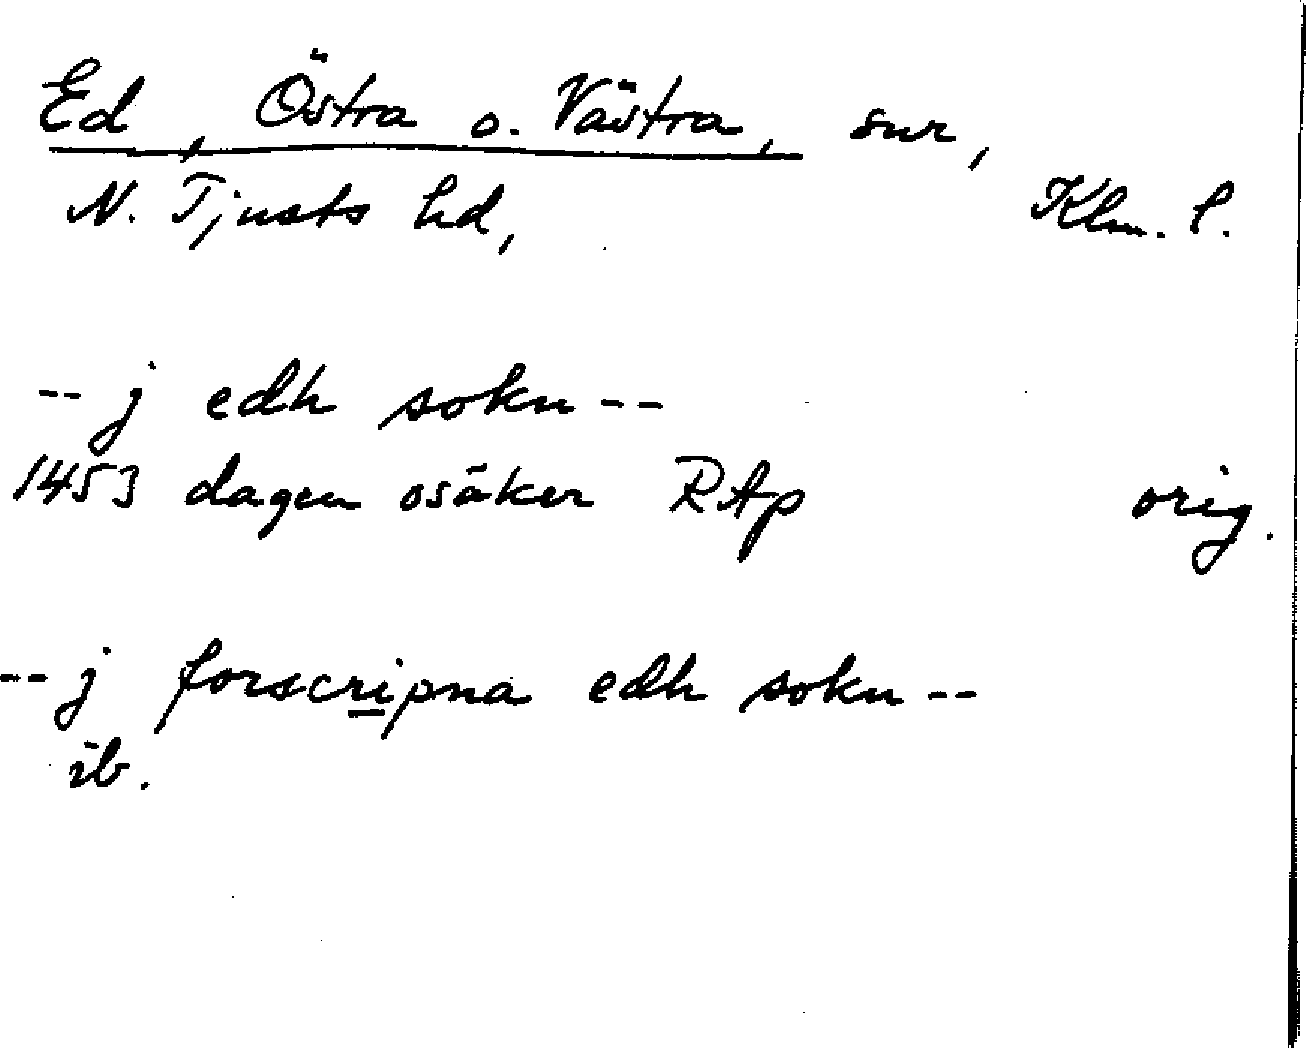 Ed, Östra o. Västra, snr,
N. Tjusts hd, Klm. l.
-- j edh sokn --
1453 dagen osäker RAp orig.
-- j forscripna edh sokn --
ib.